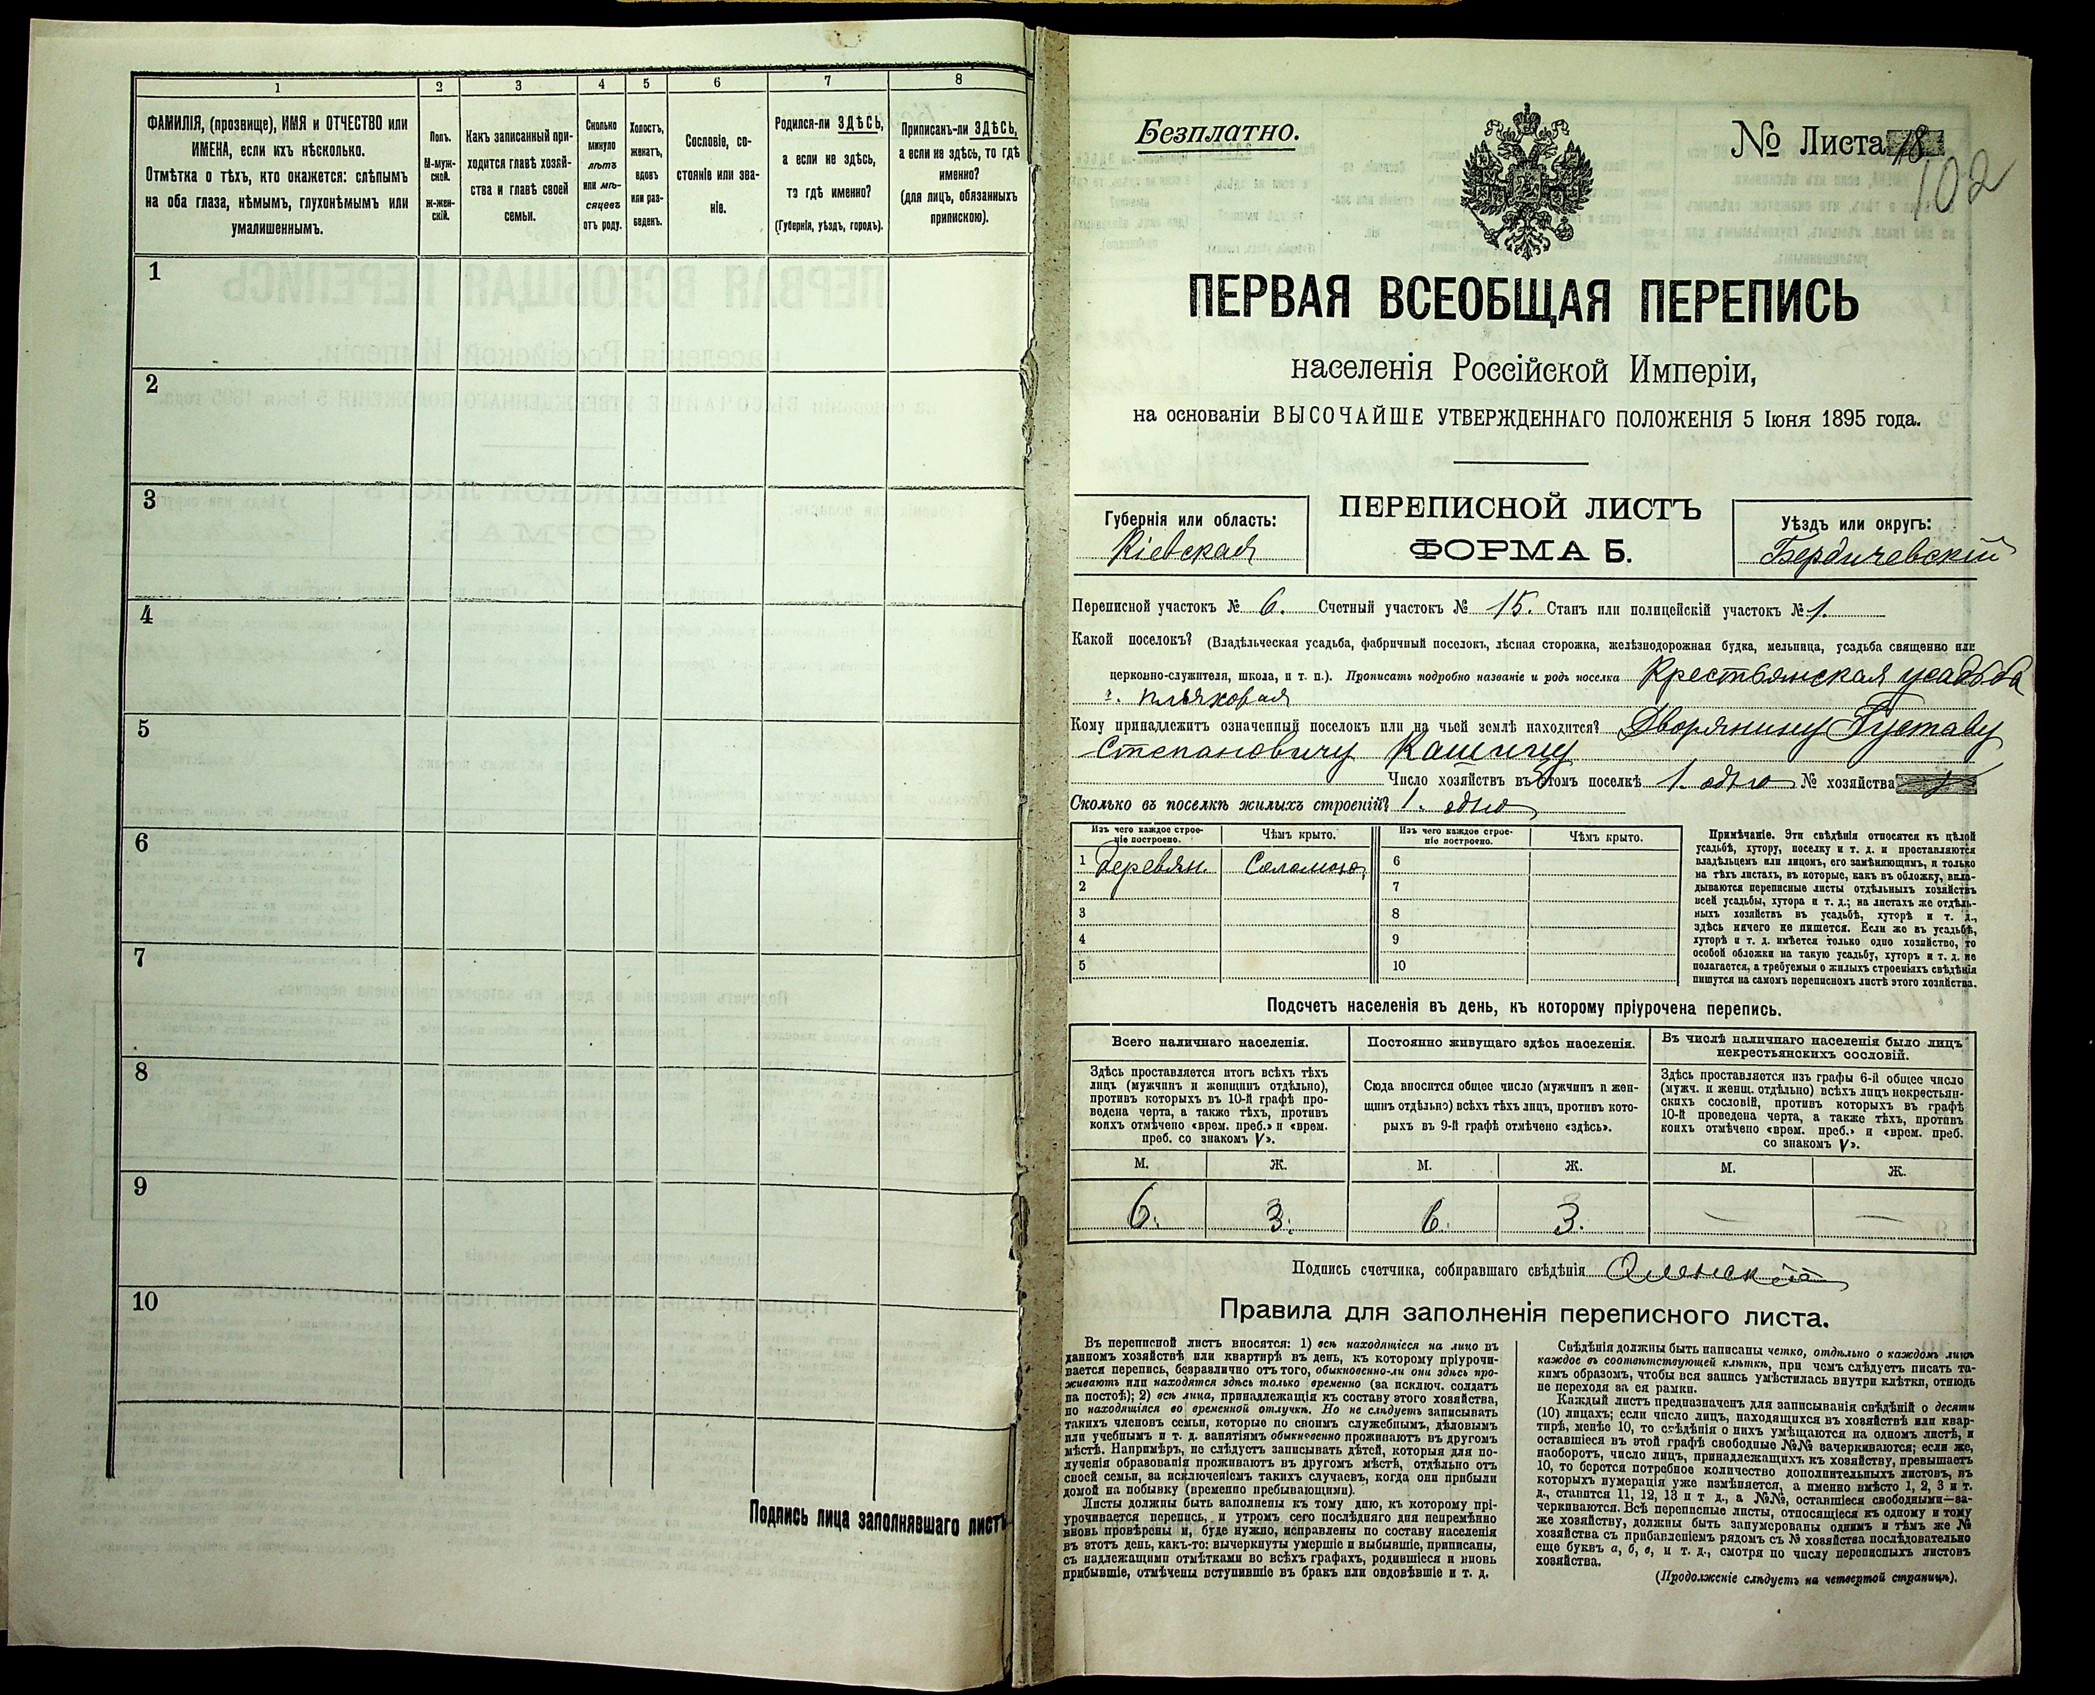 1 2 3 4 5 6 7 8
ФАМИЛІЯ, (прозвище), ИМЯ и ОТЧЕСТВО или
ИМЕНА, если ихъ нѣсколько.
Отмѣтка о тѣхъ, кто окажется: слѣпымъ
на оба глаза, нѣмымъ, глухонѣмымъ или
умалишеннымъ.
Полъ.
М-муж-
ской.
Ж-жен-
скій.
Какъ записанный при-
ходится главѣ хозяй-
ства и главѣ своей
семьи.
Сколько
минуло
лѣтъ
или мѣ-
сяцевъ
отъ роду.
Холостъ,
женатъ,
вдовъ
или раз-
веденъ.
Сословіе, со-
стояніе или зва-
ніе.
Родился-ли ЗДѢСЬ,
а если не здѣсь,
тэ гдѣ именно?
(Губернія, уѣздъ, городъ).
Приписанъ-ли ЗДѢСЬ,
а если не здѣсь, то гдѣ
именно?
(для лицъ, обязанныхъ
припискою).
1
2
3
4
5
6
7
8
9
10
Подпись лица заполнявшаго листъ
Безплатно.
№ Листа 18
102
ПЕРВАЯ ВСЕОБЩАЯ ПЕРЕПИСЬ
населенія Россійской Имперіи,
на основаніи ВЫСОЧАЙШЕ УТВЕРЖДЕННАГО ПОЛОЖЕНІЯ 5 Іюня 1895 года.
Губернія или область:
Кіевская
ПЕРЕПИСНОЙ ЛИСТЪ
ФОРМА Б.
Уѣздъ или округъ:
Бердичевскій
Переписной участокъ № 6. Счетный участокъ № 15. Станъ или полицейскій участокъ № 1.
Какой поселокъ? (Владѣльческая усадьба, фабричный поселокъ, лѣсная сторожка, желѣзнодорожная будка, мельница, усадьба священно или
церковно-служителя, школа, и т. п.). Прописать подробно названіе и родъ поселка Крестьянская усадьба
Кому принадлежитъ означенный поселокъ или на чьей землѣ находится? Дворянину Густаву
Степановичу
Число хозяйствъ въ этомъ поселкѣ 1. одно № хозяйства
Сколько въ поселкѣ жилыхъ строеній? 1. одно
Изъ чего каждое строе-
ніе построено.
Чѣмъ крыто.
Изъ чего каждое строе-
ніе построено.
Чѣмъ крыто.
1 Деревян. Соломою, 6
2 7
3 8
4 9
5 10
Примѣчаніе. Эти свѣдѣнія относятся къ цѣлой
усадьбѣ, хутору, поселку и т. д. и проставляются
владѣльцемъ или лицомъ, его замѣняющимъ, и только
на тѣхъ листахъ, въ которые, какъ въ обложку, вкла-
дываются переписные листы отдѣльныхъ хозяйствъ
всей усадьбы, хутора и т. д.; на листахъ же отдѣль-
ныхъ хозяйствъ въ усадьбѣ, хуторѣ и т. д.,
здѣсь ничего не пишется. Если же въ усадьбѣ,
хуторѣ и т. д. имѣется только одно хозяйство, то
особой обложки на такую усадьбу, хуторъ и т. д. не
полагается, а требуемыя о жилыхъ строеніяхъ свѣдѣнія
пишутся на самомъ переписномъ листѣ этого хозяйства.
Подсчетъ населенія въ день, къ которому пріурочена перепись.
Всего наличнаго населенія.
Здѣсь проставляется итогъ всѣхъ тѣхъ
лицъ (мужчинъ и женщинъ отдѣльно),
противъ которыхъ въ 10-й графѣ про-
ведена черта, а также тѣхъ, противъ
коихъ отмѣчено «врем. преб.» и «врем.
преб. со знакомъ V».
Постоянно живущаго здѣсь населенія.
Сюда вносится общее число (мужчинъ и жен-
щинъ отдѣльно) всѣхъ тѣхъ лицъ, противъ кото-
рыхъ въ 9-й графѣ отмѣчено «здѣсь».
Въ числѣ наличнаго населенія было лицъ
некрестьянскихъ сословій.
Здѣсь проставляется изъ графы 6-й общее число
(мужч. и женщ. отдѣльно) всѣхъ лицъ некрестьян-
скихъ сословій, противъ которыхъ въ графѣ
10-й проведена черта, а также тѣхъ, противъ
коихъ отмѣчено «врем. преб.» и «врем. преб.
со знакомъ V».
М. Ж. М. Ж. М. Ж.
6. 3. 6. 3. — —
Подпись счетчика, собиравшаго свѣдѣнія
Правила для заполненія переписного листа.
Въ переписной листъ вносятся: 1) всѣ находящіеся на лицо въ
данномъ хозяйствѣ или квартирѣ въ день, къ которому пріурочи-
вается перепись, безразлично отъ того, обыкновенно-ли они здѣсь про-
живаютъ или находятся здѣсь только временно (за исключ. солдатъ
на постоѣ); 2) всѣ лица, принадлежащія къ составу этого хозяйства,
но находящіяся во временной отлучкѣ. Но не слѣдуетъ записывать
такихъ членовъ семьи, которые по своимъ служебнымъ, дѣловымъ
или учебнымъ и т. д. занятіямъ обыкновенно проживаютъ въ другомъ
мѣстѣ. Напримѣръ, не слѣдуетъ записывать дѣтей, которыя для по-
лученія образованія проживаютъ въ другомъ мѣстѣ, отдѣльно отъ
своей семьи, за исключеніемъ такихъ случаевъ, когда они прибыли
домой на побывку (временно пребывающими).
Листы должны быть заполнены къ тому дню, къ которому прі-
урочивается перепись, и утромъ сего послѣдняго дня непремѣнно
вновь провѣрены и, буде нужно, исправлены по составу населенія
въ этотъ день, какъ-то: вычеркнуты умершіе и выбывшіе, приписаны,
съ надлежащими отмѣтками во всѣхъ графахъ, родившіеся и вновь
прибывшіе, отмѣчены вступившіе въ бракъ или овдовѣвшіе и т. д.
Свѣдѣнія должны быть написаны четко, отдѣльно о каждомъ лицѣ
каждое въ соотвѣтствующей клѣткѣ, при чемъ слѣдуетъ писать та-
кимъ образомъ, чтобы вся запись умѣстилась внутри клѣтки, отнюдь
не переходя за ея рамки.
Каждый листъ предназначенъ для записыванія свѣдѣній о десяти
(10) лицахъ; если число лицъ, находящихся въ хозяйствѣ или квар-
тирѣ, менѣе 10, то свѣдѣнія о нихъ умѣщаются на одномъ листѣ, и
оставшіеся въ этой графѣ свободные №№ вачеркиваются; если же,
наоборотъ, число лицъ, принадлежащихъ къ хозяйству, превышаетъ
10, то берется потребное количество дополнительныхъ листовъ, въ
которыхъ нумерація уже измѣняется, а именно вмѣсто 1, 2, 3 и т.
д., ставится 11, 12, 13 и т д., а №№, оставшіеся свободными—за-
черкиваются. Всѣ переписные листы, относящіеся къ одному и тому
же хозяйству, должны быть занумерованы однимъ и тѣмъ же №
хозяйства съ прибавленіемъ рядомъ съ № хозяйства послѣдовательно
еще буквъ а, б, в, и т. д., смотря по числу переписныхъ листовъ
хозяйства.
(Продолженіе слѣдуетъ на четвертой страницѣ).